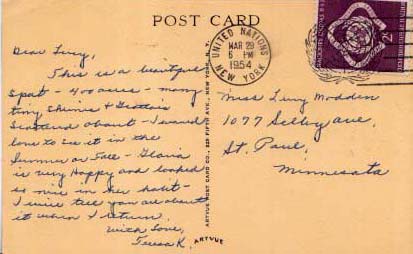 POST CARD
UNITED NATIONS
MAR 29
6 PM
1954
NEW YORK
Dear Lucy,
This is a beautiful
spot - 400 acres - many
tiny Shrines & Grottos
scattered about - I would
love to see it in the
Summer or Fall - Gloria
is very Happy and looked
so nice in her habit -
I will tell you all about
it when I return.
With Love,
Teresa K.
ARTVUE POST CARD CO., 225 FIFTH AVE., NEW YORK, N. Y.
ARTVUE
Miss Lucy Modden
1077 Selby Ave,
St. Paul,
Minnesota